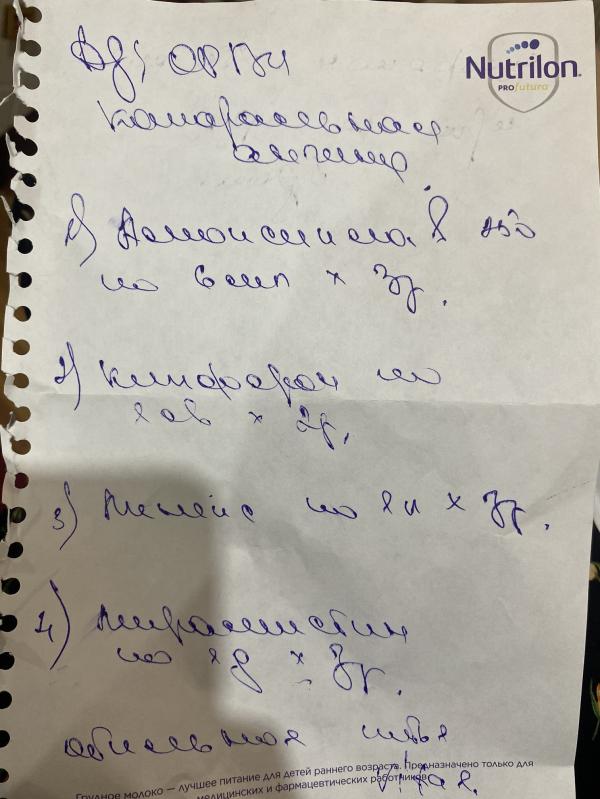 Nutrilon
PROfutura
Дз; ОРВИ
катаральная
ангина
1) Амоксициллин 250
по 6 мл х 3р.
2) Кипферон по
1 св х 2р.
3) по 1 х 3р.
4) Мирамистин
по х 3р.
обильное питье
Грудное молоко — лучшее питание для детей раннего возраста. Предназначено только для
медицинских и фармацевтических работников